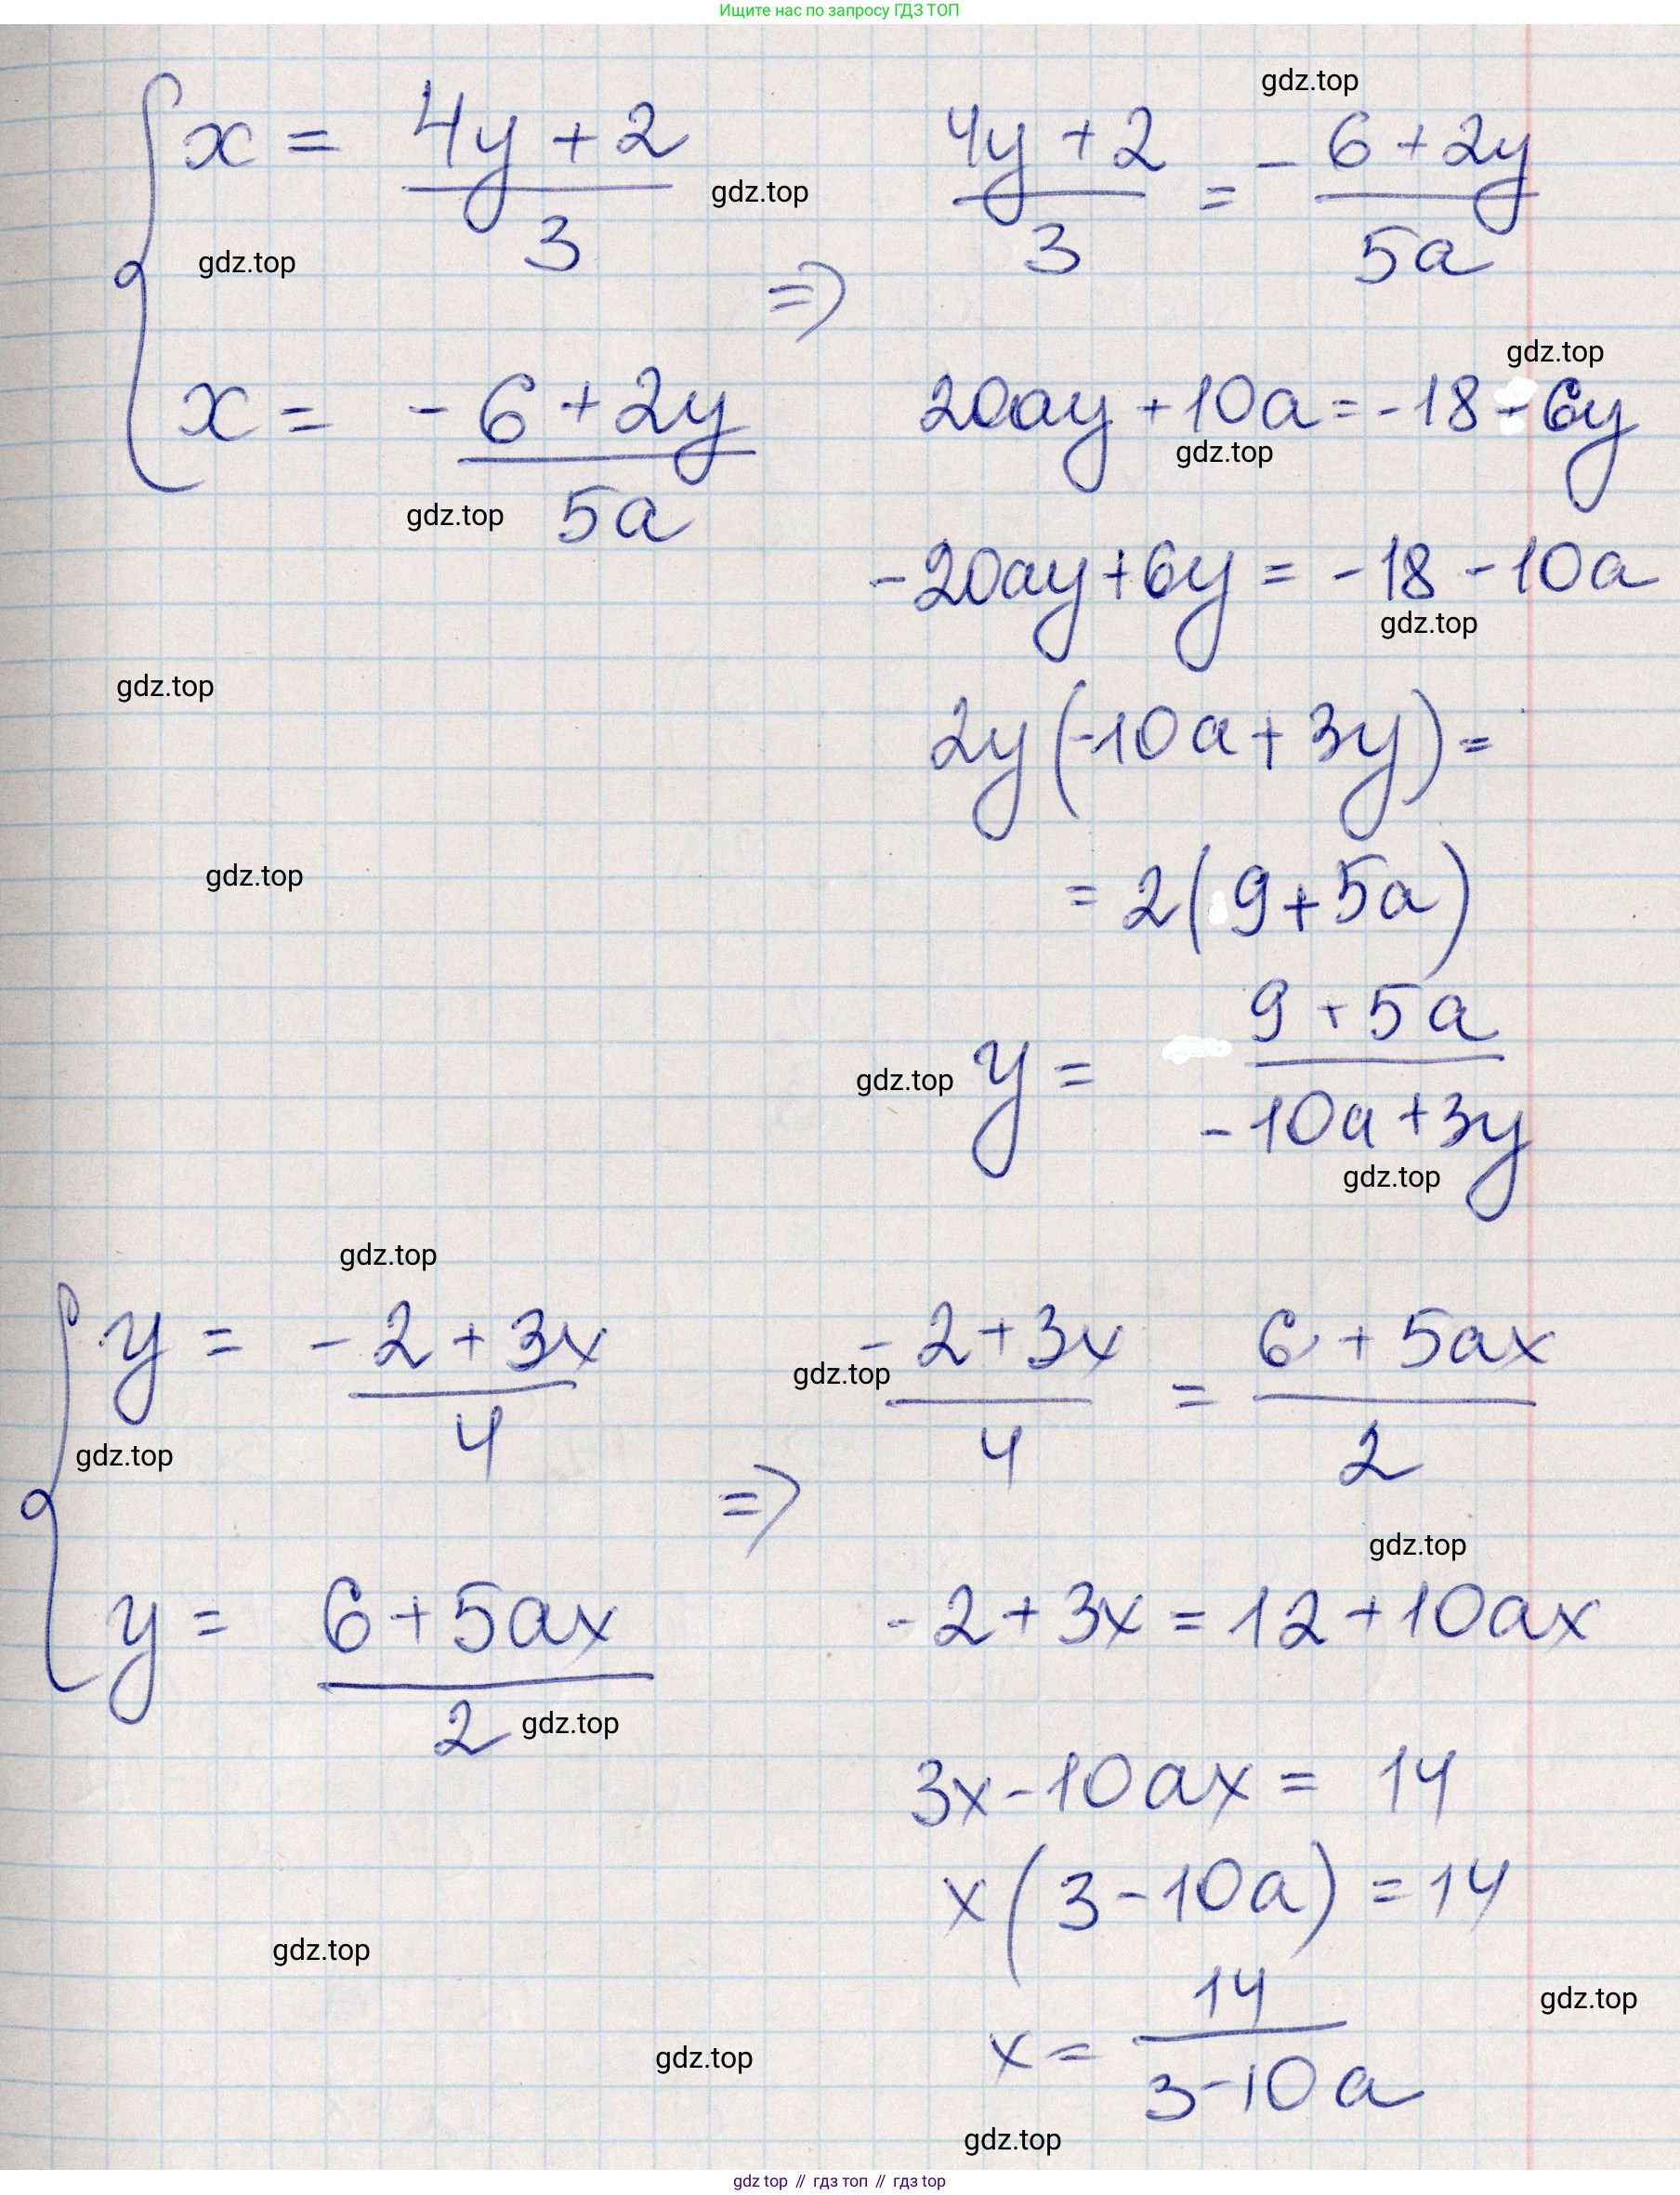 Ищите нас по запросу ГДЗ ТОП
gdz.top
x = (4y + 2)/3
gdz.top
gdz.top
x = - (6 + 2y)/5a
gdz.top
=>
(4y + 2)/3 = - (6 + 2y)/5a
gdz.top
20ay + 10a = -18 - 6y
gdz.top
-20ay + 6y = -18 - 10a
gdz.top
gdz.top
2y(-10a + 3y) =
gdz.top
= 2(9 + 5a)
gdz.top
y = (9 + 5a)/(-10a + 3y)
gdz.top
gdz.top
y = (-2 + 3x)/4
gdz.top
y = (6 + 5ax)/2
gdz.top
=>
gdz.top
(-2 + 3x)/4 = (6 + 5ax)/2
gdz.top
-2 + 3x = 12 + 10ax
3x - 10ax = 14
x(3 - 10a) = 14
gdz.top
gdz.top
x = 14/(3 - 10a)
gdz.top
gdz.top
gdz top // гдз топ // гдз top